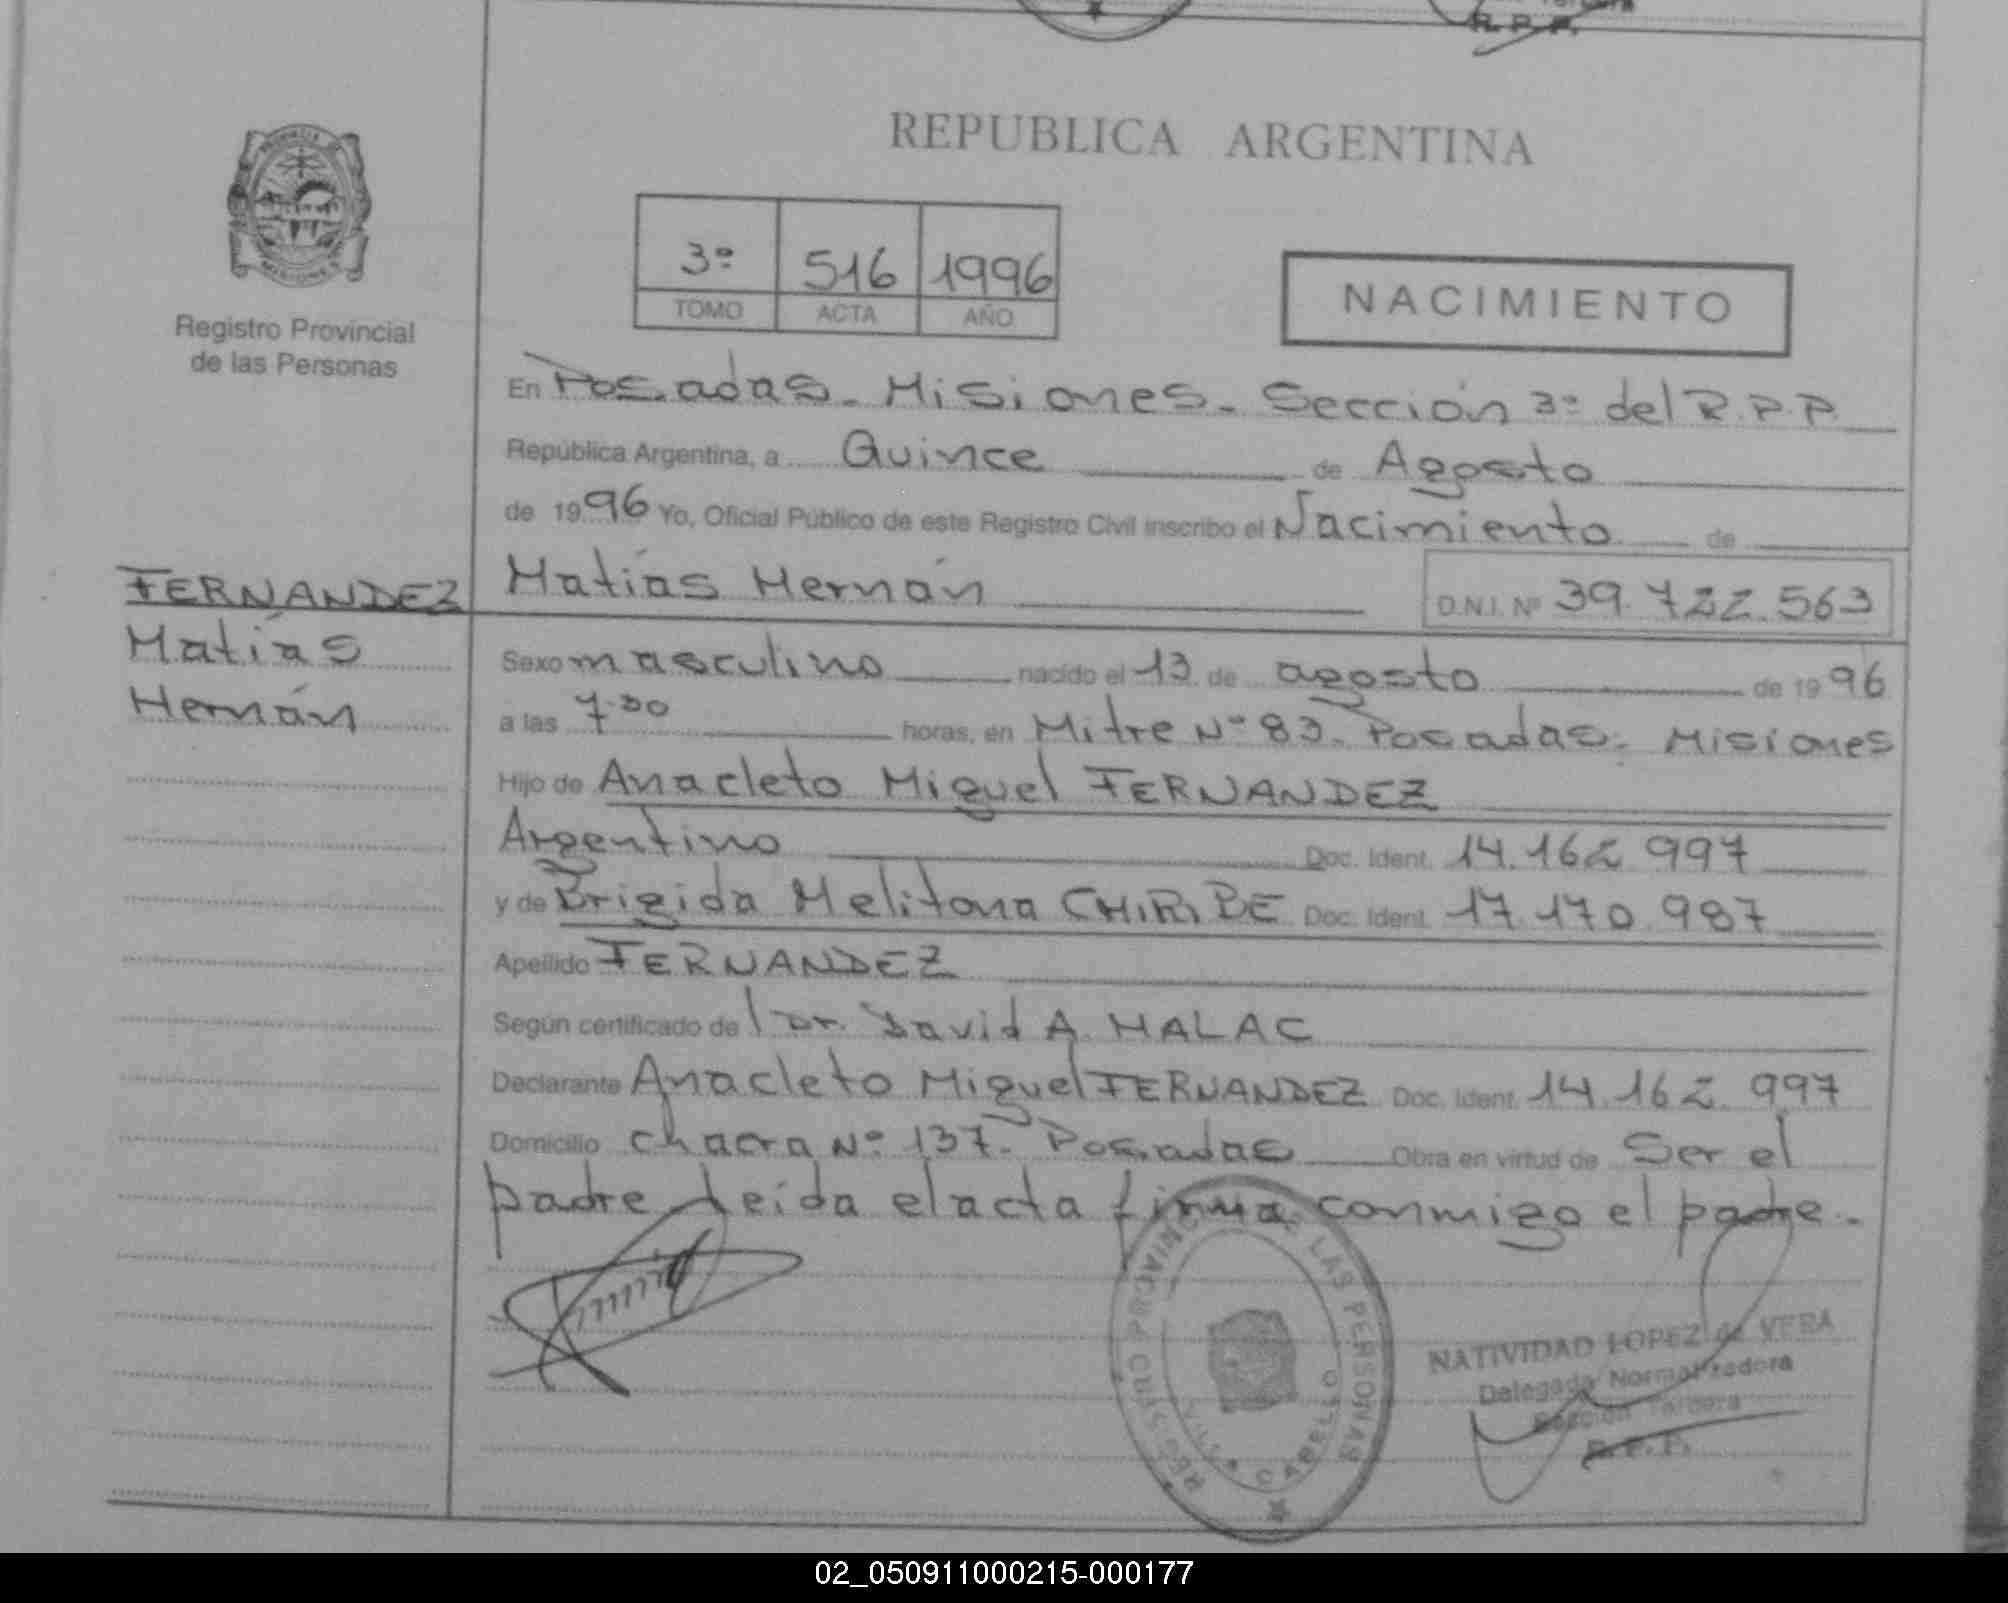 R. P. P.
REPUBLICA ARGENTINA
Registro Provincial
de las Personas
3º 516 1996
TOMO ACTA AÑO
NACIMIENTO
En Posadas. Misiones. Sección 3º del R.P.P.
República Argentina, a Quince de Agosto
de 1996 Yo, Oficial Público de este Registro Civil inscribo el Nacimiento de
FERNANDEZ
Matías
Hernán
Matías Hernán D.N.I. Nº 39.722.563
Sexo masculino nacido el 13 de agosto de 1996
a las 7:30 horas, en Mitre Nº 83. Posadas. Misiones
Hijo de Anacleto Miguel FERNANDEZ
Argentino Doc. Ident. 14.162.997
y de Brigida Melitona CHIRIBE Doc. Ident. 17.170.987
Apellido FERNANDEZ
Según certificado del Dr. David A. MALAC
Declarante Anacleto Miguel FERNANDEZ Doc. Ident. 14.162.997
Domicilio chacra Nº 137. Posadas Obra en virtud de Ser el
padre leída el acta firma conmigo el padre.
PROVINCIAL DE LAS PERSONAS
VILLA CABELLO
NATIVIDAD LOPEZ de VERA
Delegada Normalizadora
Sección Tercera
R.P.P.
02_050911000215-000177